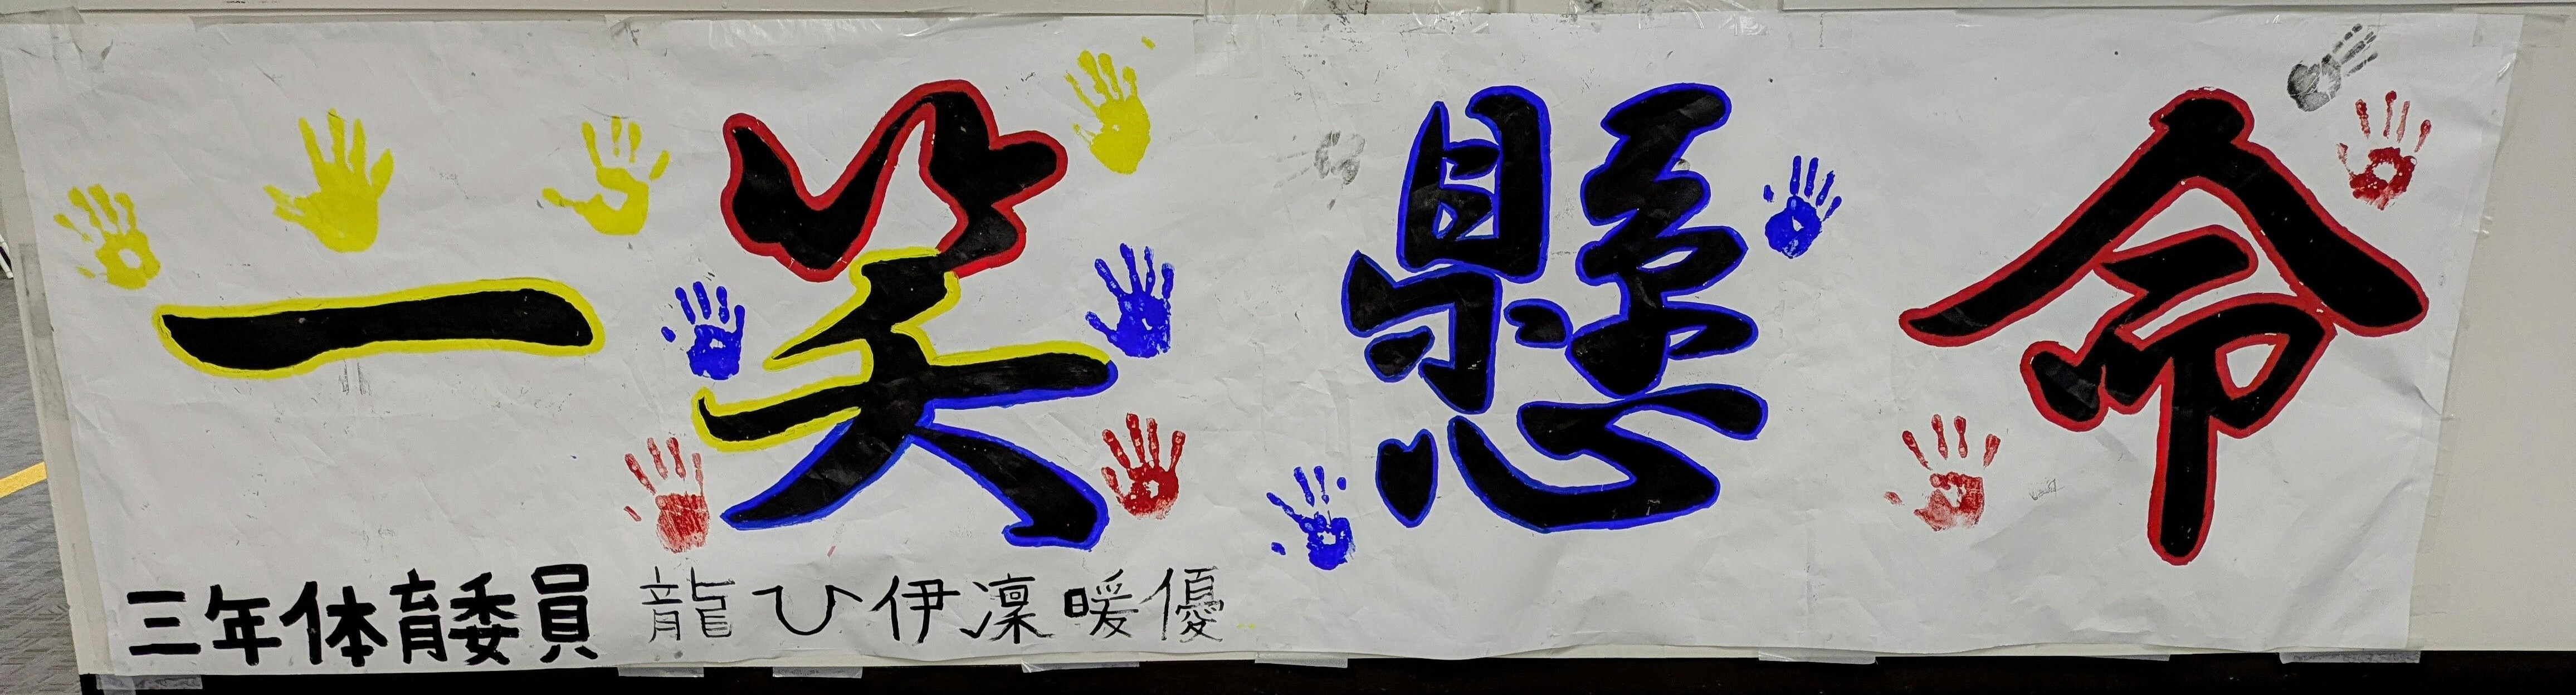 一笑懸命
三年体育委員 龍ひ伊凜暖優